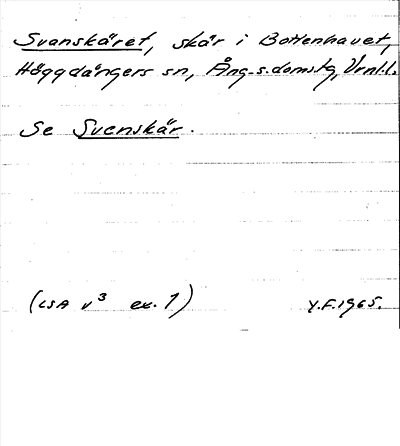 Svanskäret, skär i Bottenhavet,
Häggdångers sn, Ång. s. domstg, Vrnl.l.
Se Svenskär.
(LSA v³ ex. 1) Y.F. 1965.